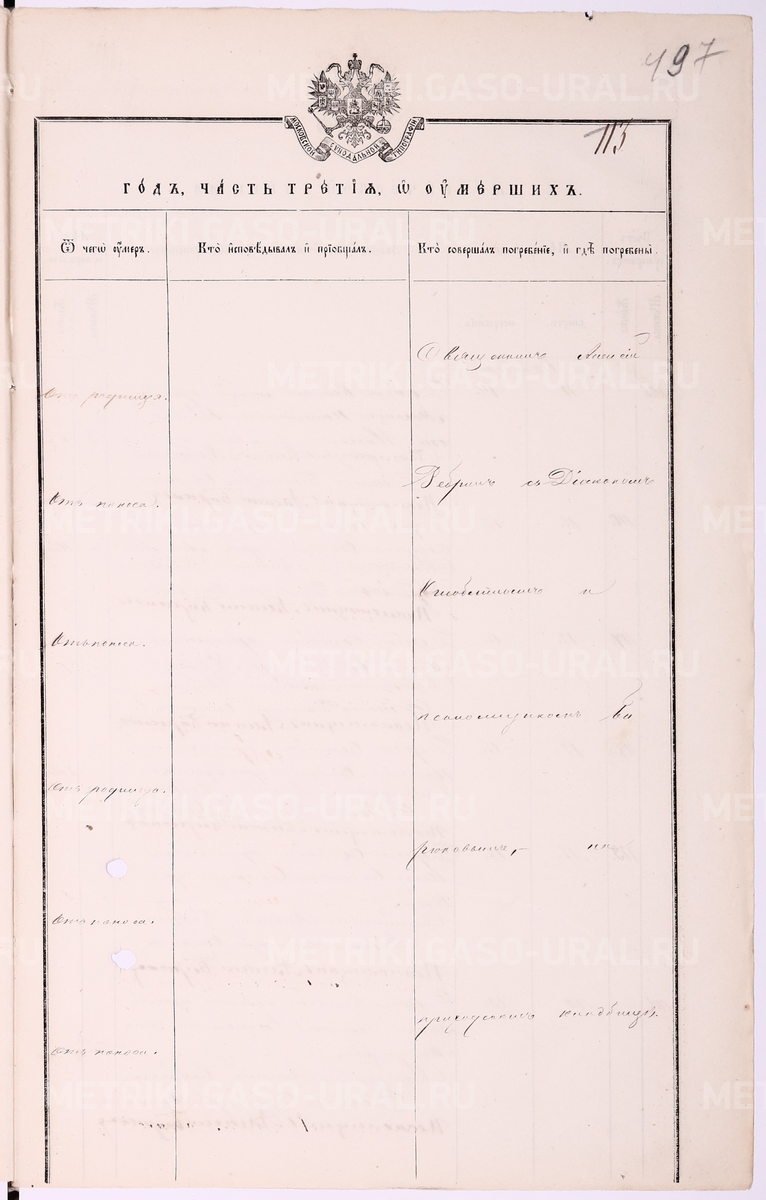 497
113
МОСКОВСКОЙ СѴНОДАЛЬНОЙ ТИПОГРАФІИ
ГОДЪ, ЧАСТЬ ТРЕТІѦ, Ѡ ОУМЕРШИХЪ.
Ѿ чегѡ оумеръ.
Кто исповѣдывалъ и пріобщалъ.
Кто совершалъ погребеніе, и гдѣ погребены.
Священникъ Алексій
Отъ родимца.
съ Діакономъ
Отъ поноса.
и
Отъ поноса.
псаломщикомъ Би
Отъ родимца.
рюковымъ, на
Отъ поноса.
приходскомъ кладбищѣ.
Отъ поноса.
METRIKI.GASO-URAL.RU